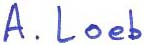 A. Loeb